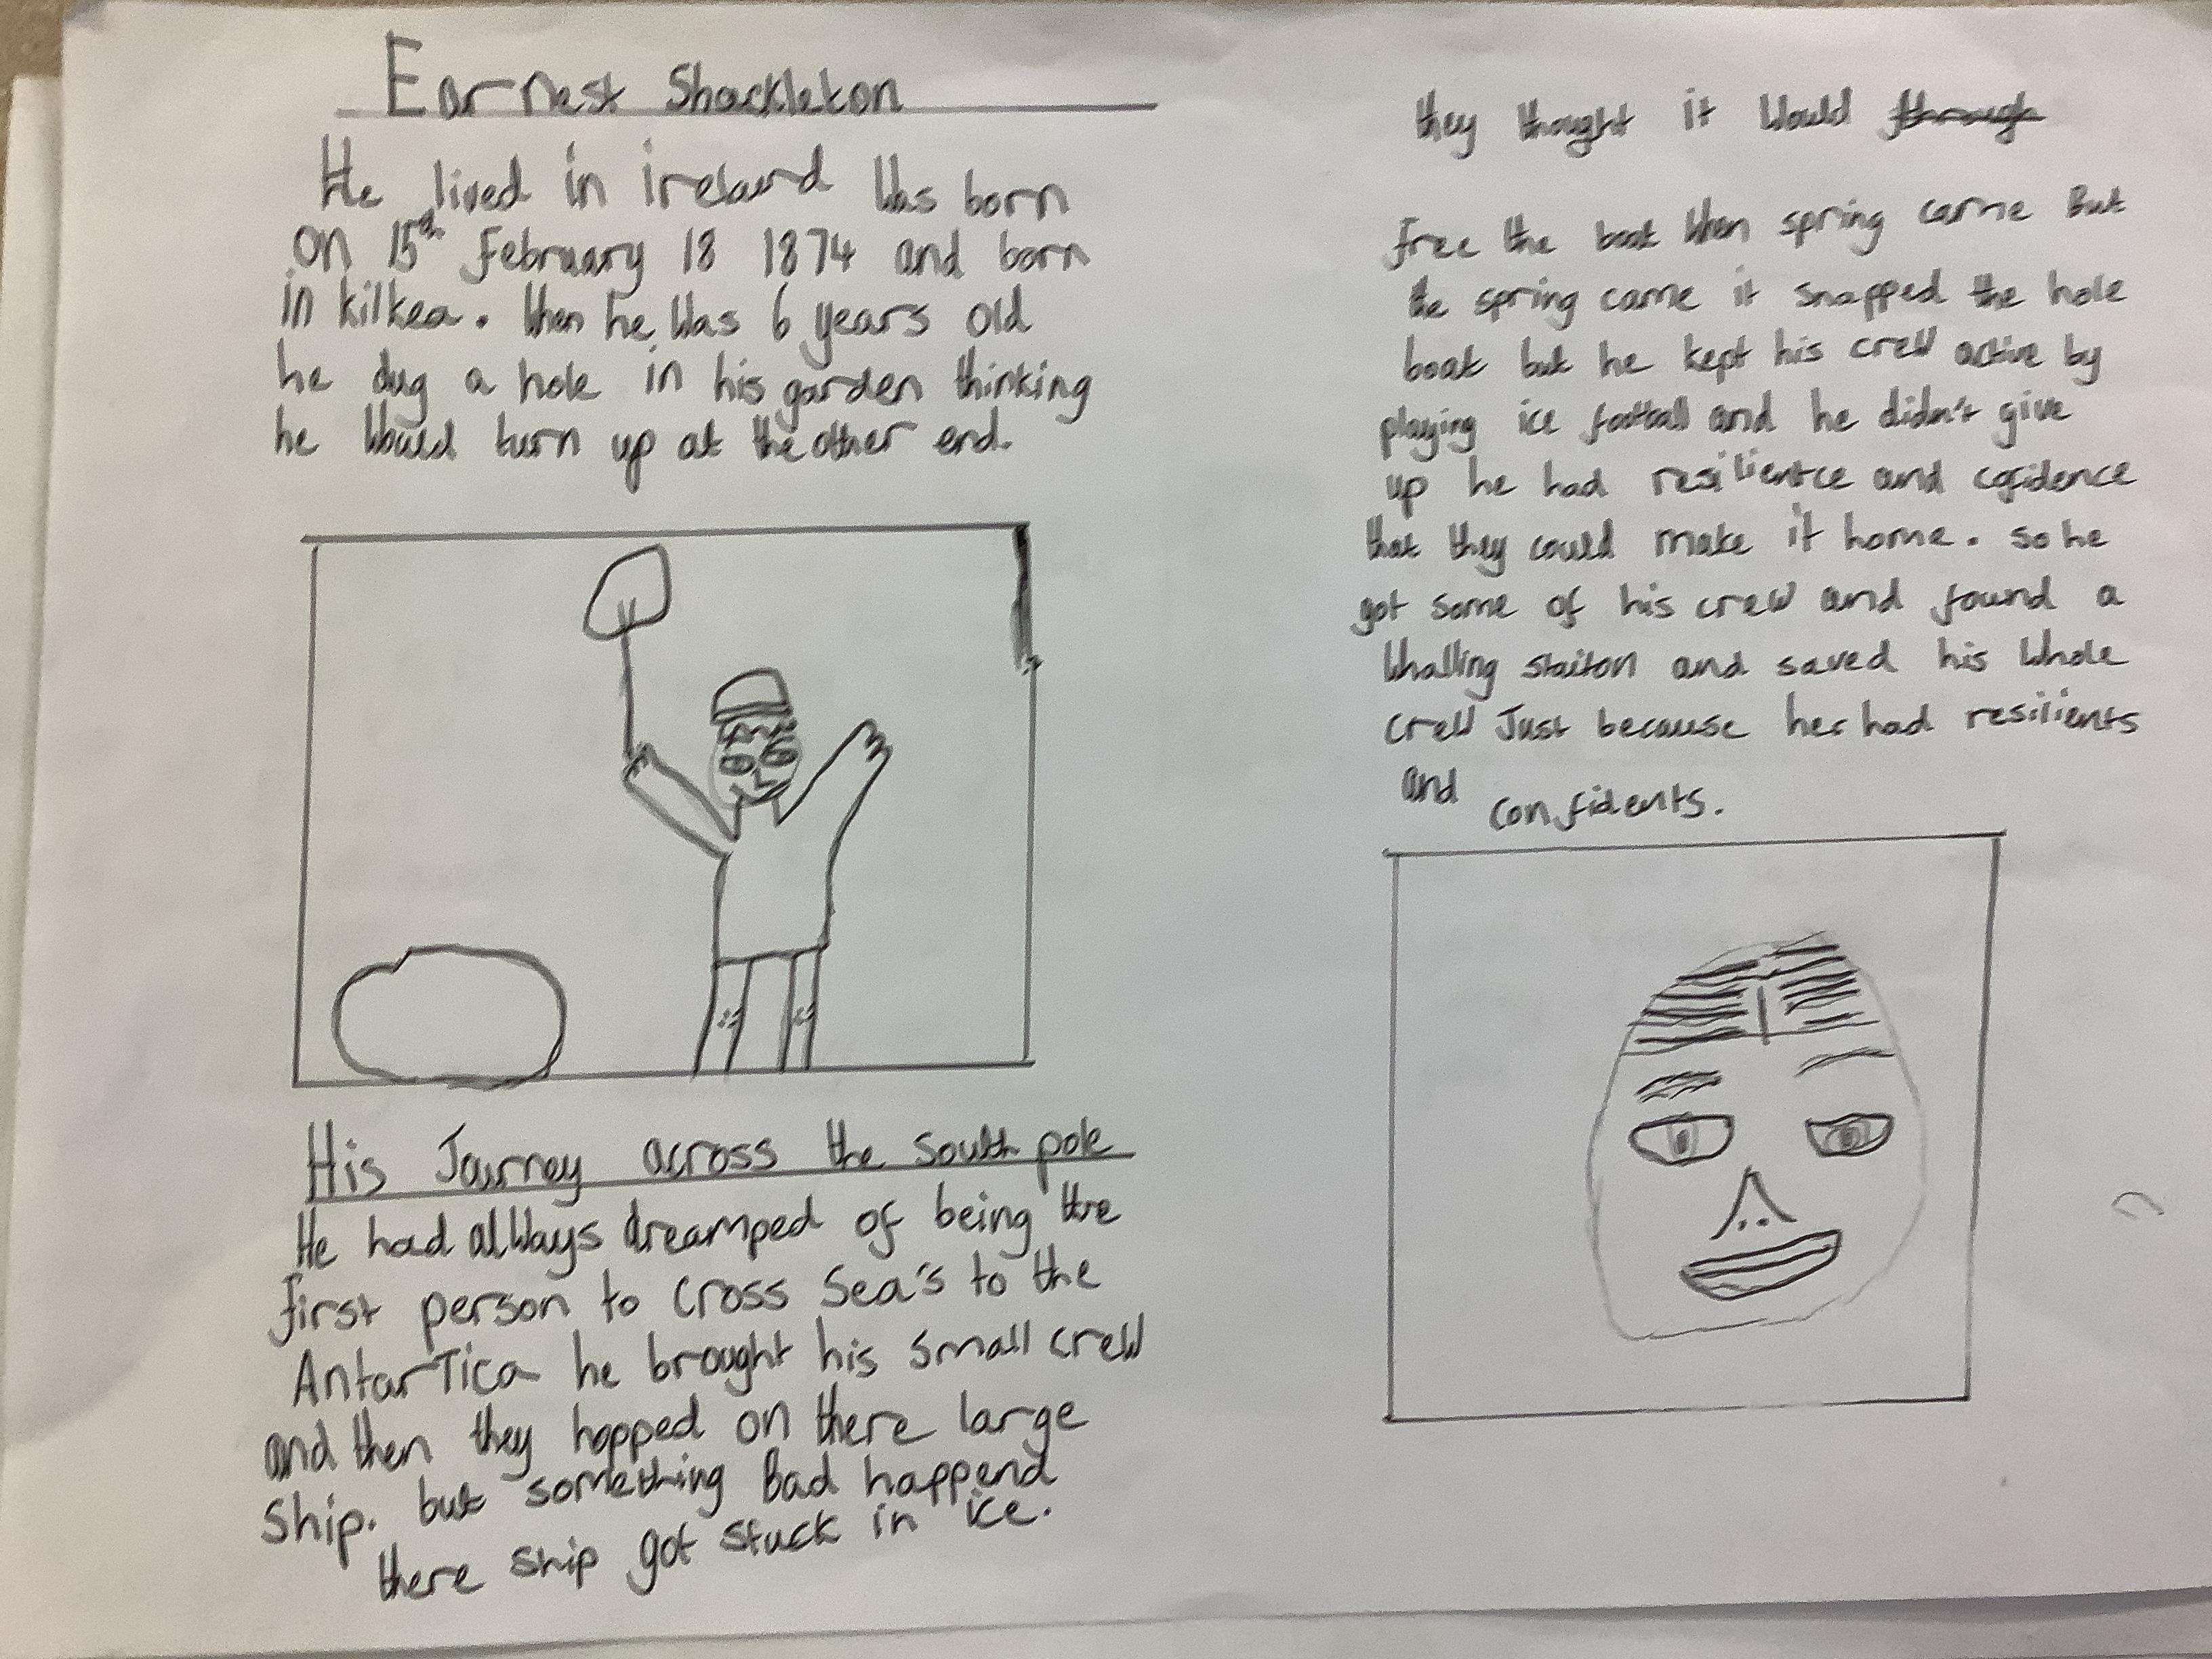 Earnest Shackleton
He lived in ireland Was born
on 15th february 18 1874 and born
in kilkea. When he Was 6 years old
he dug a hole in his garden thinking
he Would turn up at the other end.
His Journey across the south pole
He had alWays dreamped of being the
first person to cross Sea's to the
AntarTica he brought his small crew
and then they hopped on there large
ship. but something Bad happend
there ship got stuck in ice.
they thought it Would through
free the boat When spring came But
the spring came it snapped the hole
boat but he kept his crew active by
playing ice football and he didn't give
up he had resilientce and cofidence
that they could make it home. so he
got some of his crew and found a
Whalling staiton and saved his Whole
crew Just because he had resilients
and confidents.